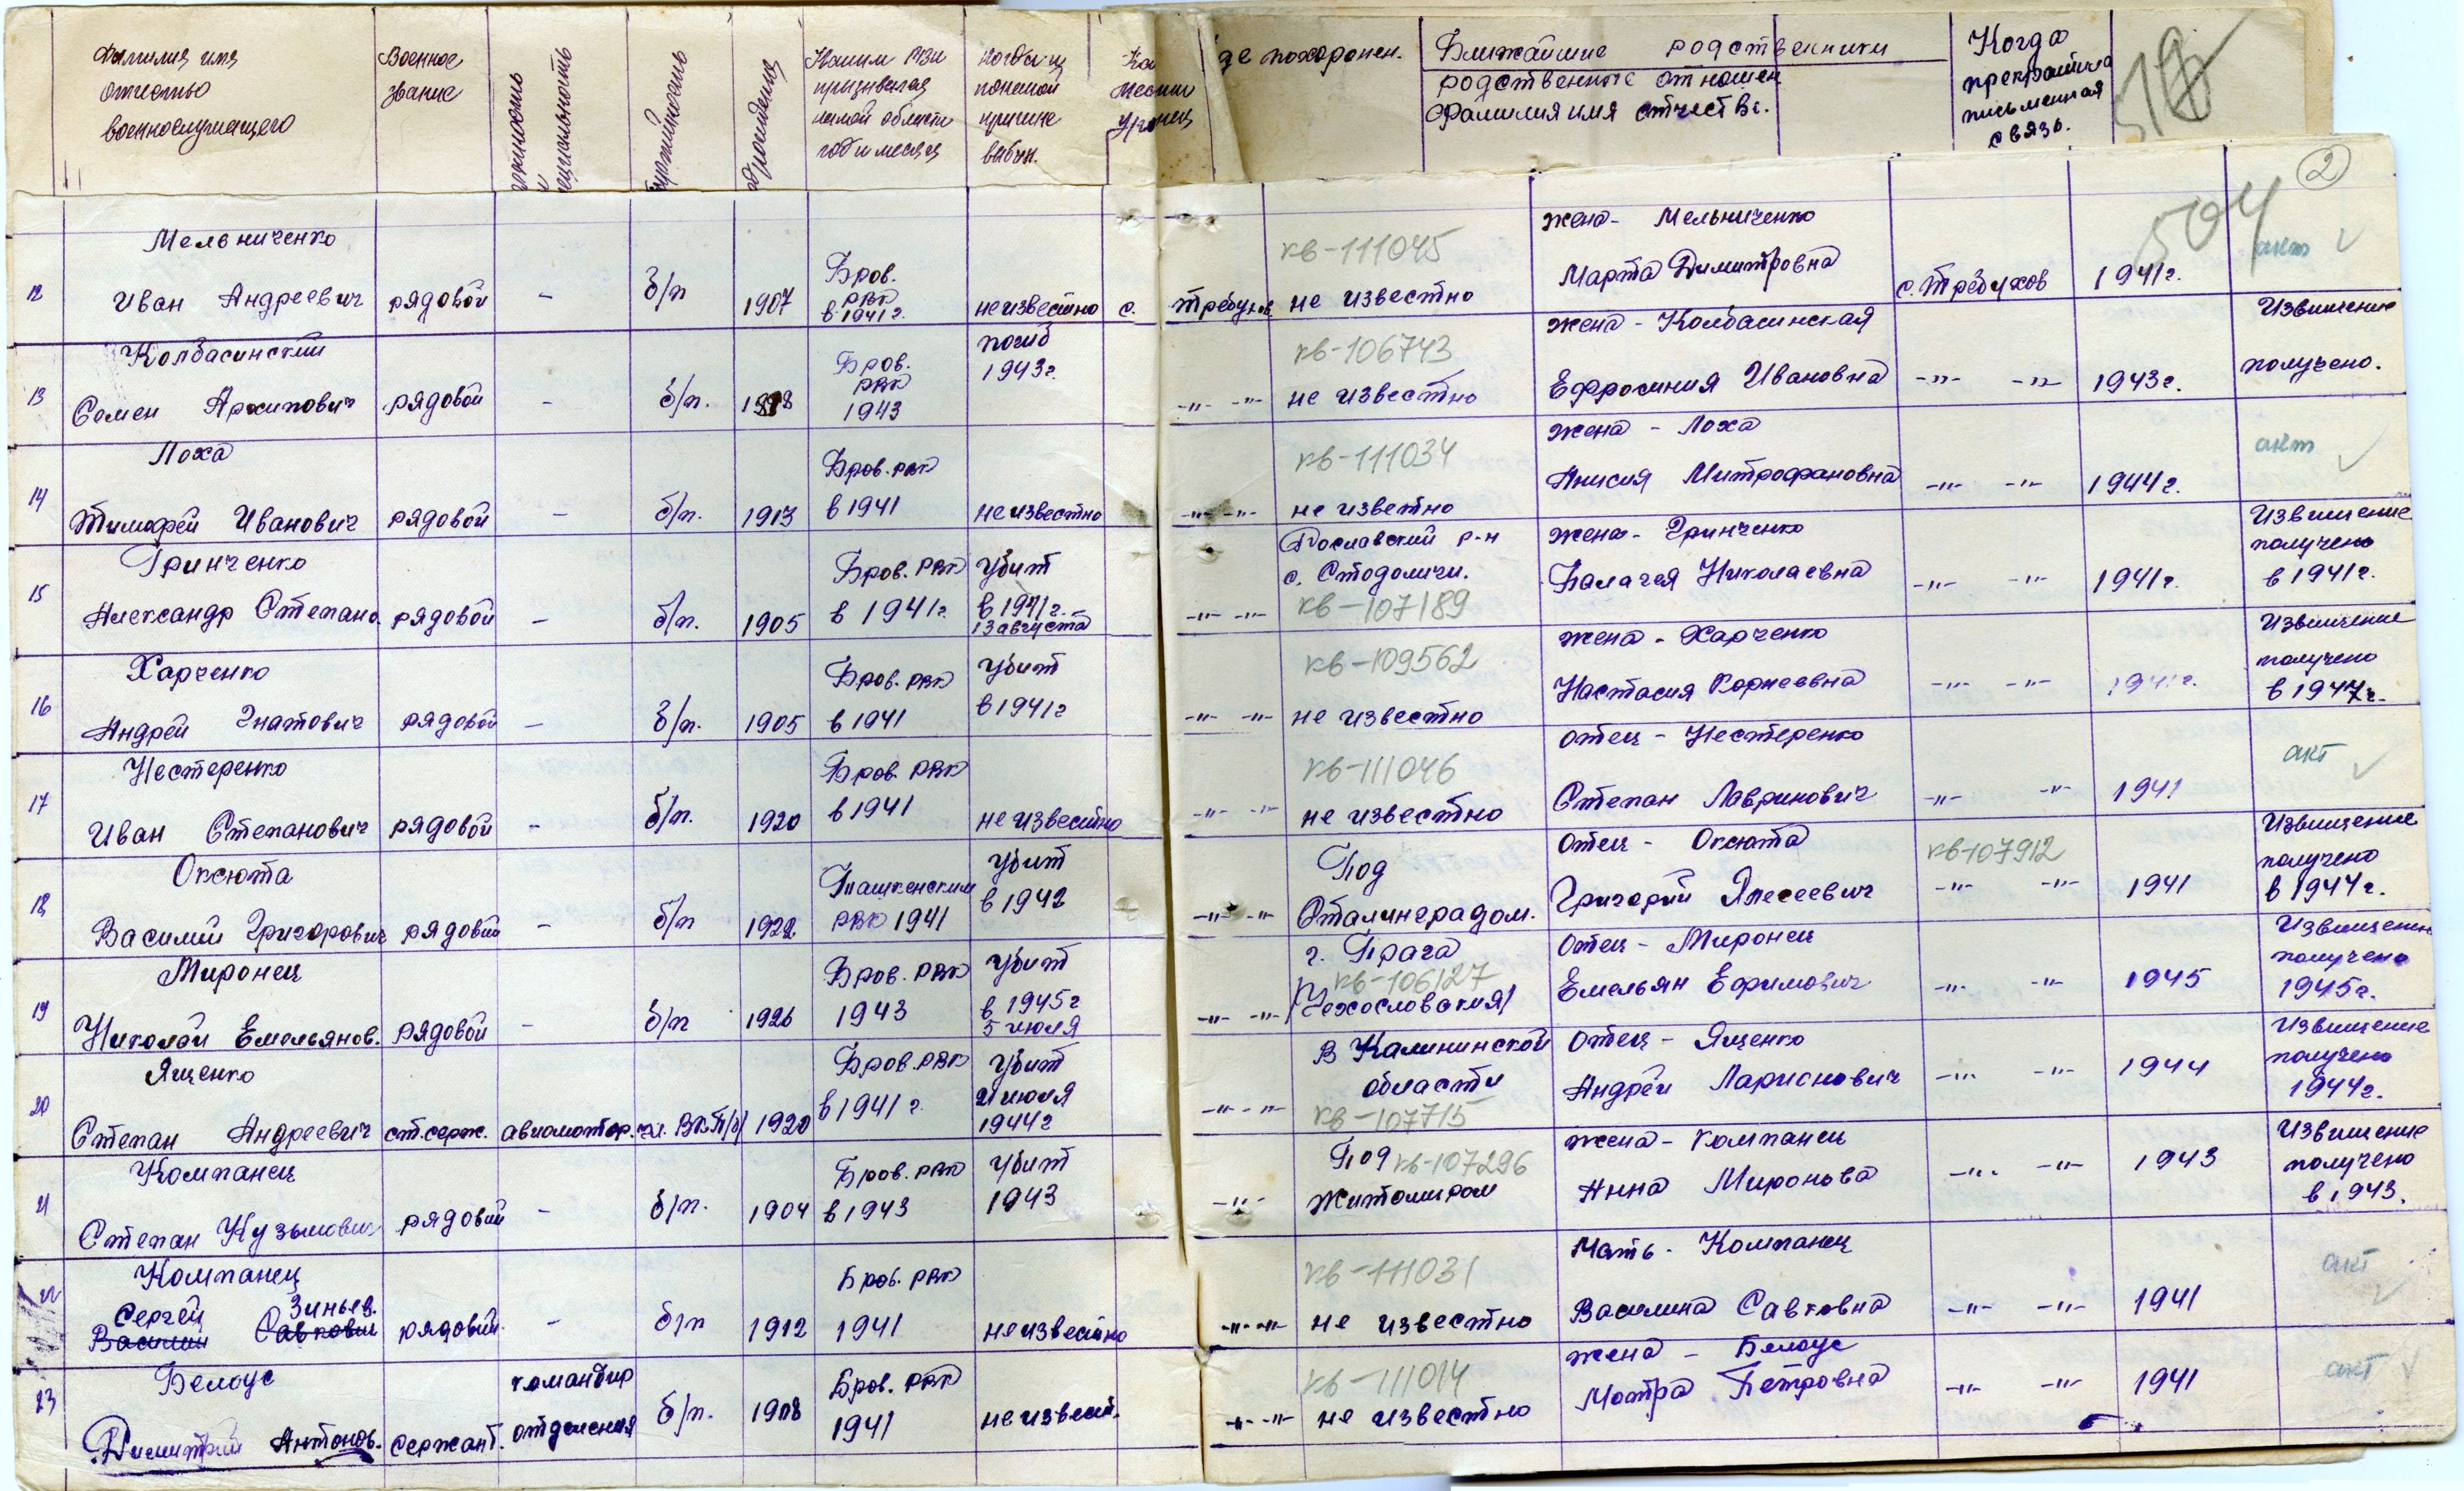 Фамилия имя
отчество
военнослужащего
Военное
звание
специальность
партийность
рождения
Каким РВК
призывался
какой области
год и месяц
когда и
по какой
причине
выбыл.
где похоронен.
Ближайшие родственники
родственные отношен.
Фамилия имя отчество.
Когда
прекратилась
письменная
связь.
2
504
12 Мельниченко
Иван Андреевич рядовой - б/п 1907 Бров.
РВК
в 1941 г. неизвестно с. Требухов
кв-111045
не известно
жена - Мельниченко
Марта Димитровна с. Требухов 1941 г. акт
13 Колбасинский
Семен Архипович рядовой - б/п. Бров.
РВК
1943
погиб
1943 г.
-"- -"- кв-106743
не известно
жена - Колбасинская
Ефросиния Ивановна -"- -"- 1943 г. Извищение
получено.
14 Лоха
Тимофей Иванович рядовой - б/п. 1913 Бров. РВК
в 1941 неизвестно
-"- -"- кв-111034
не известно
жена - Лоха
Анисия Митрофановна -"- -"- 1944 г. акт
15 Гринченко
Александр Степано. рядовой - б/п. 1905 Бров. РВК
в 1941 г.
убит
в 1941 г.
13 августа
-"- -"- Рославский р-н
с. Стодоличи.
кв-107189
жена - Гринченко
Палагея Николаевна -"- -"- 1941 г. Извищение
получено
в 1941 г.
16 Харченко
Андрей Гнатович рядовой - б/п. 1905 Бров. РВК
в 1941
убит
в 1941 г
-"- -"- кв-109562
не известно
жена - Харченко
Настасия Корнеевна -"- -"- 1941 г. Извищение
получено
17 Нестеренко
Иван Степанович рядовой - б/п. 1920 Бров. РВК
в 1941 неизвестно
-"- -"- кв-111046
не известно
отец - Нестеренко
Степан Лавринович -"- -"- 1941 акт
18 Оксюта
Василий Григорович рядовой - б/п 1922 Ташкенским
РВК 1941
убит
в 1942
-"- -"- Под
Сталинградом.
отец - Оксюта
Григорий Алесеевич кв-107912
-"- -"- 1941 Извищение
получено
в 1944 г.
19 Миронец
Николай Емельянов. рядовой - б/п 1926 Бров. РВК
1943
убит
в 1945 г
5 июля
-"- -"- г. Прага
кв-106127
/Чехословакия/
отец - Миронец
Емельян Ефимович -"- -"- 1945 Извищение
получено
1945 г.
20 Ященко
Степан Андреевич ст. серж. авиамотор. чл. ВКП/б/ 1920 Бров. РВК
в 1941 г.
убит
21 июля
1944 г
-"- -"- В Калининской
области
кв-107715
отец - Ященко
Андрей Ларионович -"- -"- 1944 Извищение
получено
1944 г.
21 Компанец
Степан Кузьмович рядовой - б/п. 1904 Бров. РВК
в 1943
убит
1943
-"- Под кв-107296
Житомиром
жена - Компанец
Анна Миронова -"- -"- 1943 Извищение
получено
в 1943.
22 Компанец
Сергей Зиньев.
Василий Савкович рядовой. - б/п 1912 Бров. РВК
1941 неизвестно
-"- -"- кв-111031
не известно
Мать - Компанец
Василина Савковна -"- -"- 1941 акт
23 Белоус
Димитрий Антонов. сержант. командир
отделения б/п. 1908 Бров. РВК
1941 неизвест.
-"- -"- кв-111014
не известно
жена - Белоус
Мотра Петровна -"- -"- 1941 акт